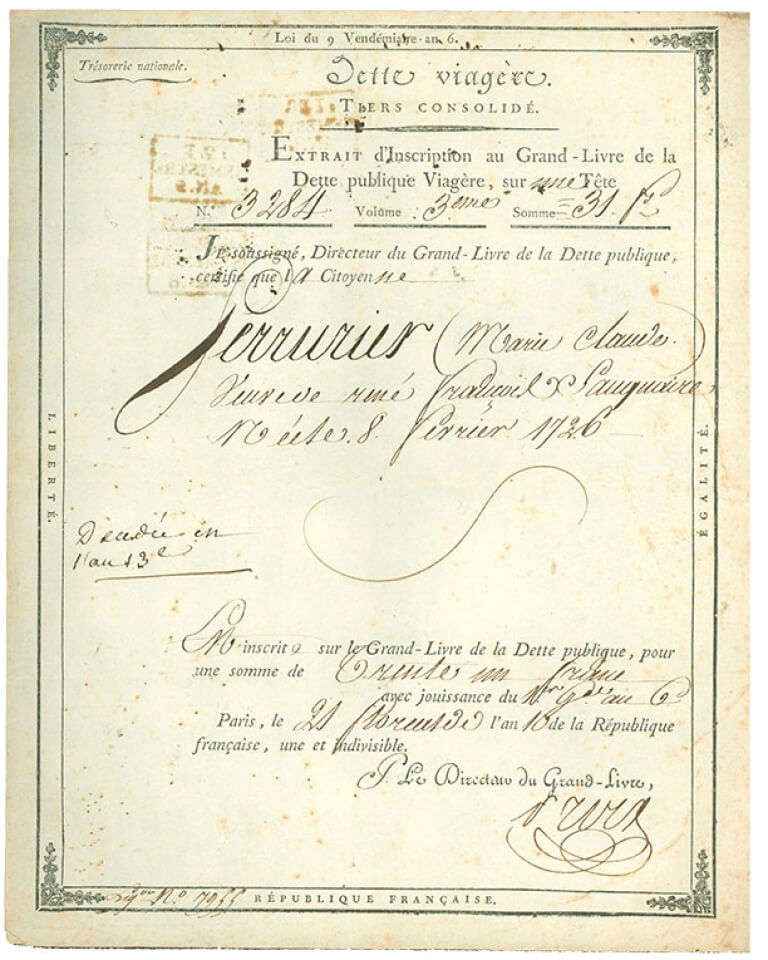 Loi du 9 Vendémiaire an 6.
Trésorerie nationale.
Dette viagère.
TIERS CONSOLIDÉ.
EXTRAIT d'Inscription au Grand-Livre de la
Dette publique Viagère, sur une Tête
N.° 3284 Volume 3eme Somme = 31 f.
JE soussigné, Directeur du Grand-Livre de la Dette publique,
certifie que la Citoyenne
Serrurier (Marie Claude)
Veuve de rené
Née le 8 Fevrier 1726
LIBERTÉ.
ÉGALITÉ.
Décédée en
l'an 13e
inscrite sur le Grand-Livre de la Dette publique, pour
une somme de Trente un francs
avec jouissance du 1er au 6
Paris, le 21 floréal de l'an 10 de la République
française, une et indivisible.
P. Le Directeur du Grand-Livre,
N.o 7955
RÉPUBLIQUE FRANÇAISE.